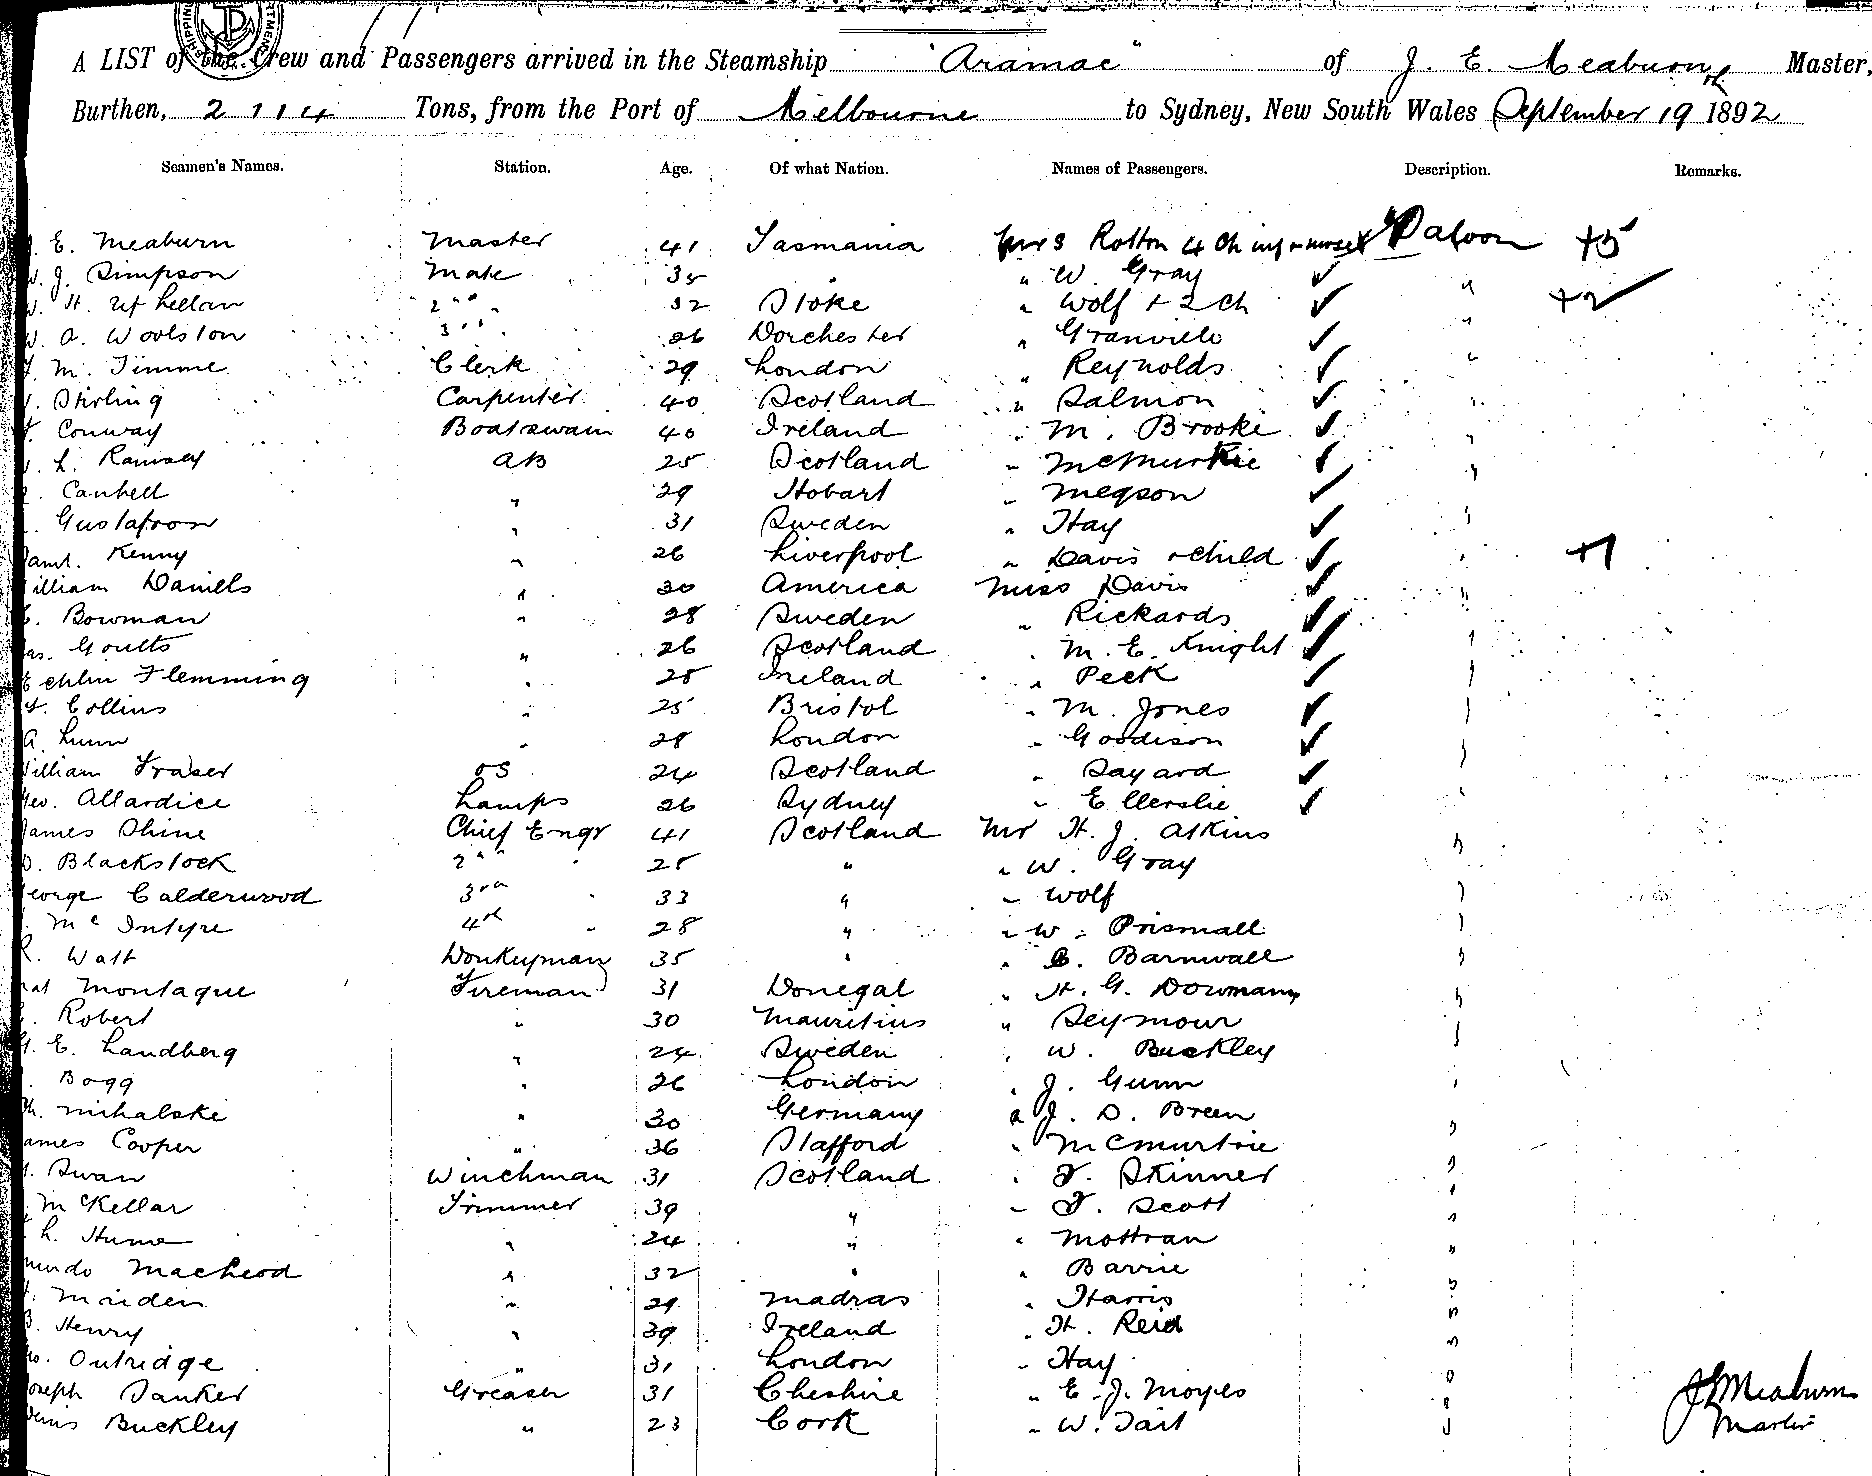 A LIST of the Crew and Passengers arrived in the Steamship "Aramac" of J. E. Meaburn Master,
Burthen, 2114 Tons, from the Port of Melbourne to Sydney, New South Wales September 19 1892
Seamen's Names. Station. Age. Of what Nation. Names of Passengers. Description. Remarks.
J. E. Meaburn Master 41 Tasmania Mrs Rotton 4 Ch inf + nurse Saloon +5
W. J. Simpson Mate 35 " W. Gray ✓ "
W. H. 2nd " 32 Stoke " Wolf + 2 Ch ✓ " +2
W. A. Woolston 3rd " 26 Dorchester " Granville ✓ "
M. Timme Clerk 29 London " Reynolds ✓ "
Stirling Carpenter 40 Scotland " Salmon ✓ "
Conway Boatswain 40 Ireland " M. Brooke ✓ "
L. Ramsey AB 25 Scotland " McMurkie ✓ "
Canbell " 29 Hobart " Megson ✓ "
Gustafson " 31 Sweden " Hay ✓ "
Saml. Kenny " 26 Liverpool " Davis + Child ✓ " +1
William Daniels " 30 America Miss Davis ✓ "
Bowman " 28 Sweden " Rickards ✓ "
Jas. Goults " 26 Scotland " M. E. Knight ✓ "
Echlin Flemming " 25 Ireland " Peek ✓ "
Collins " 25 Bristol " M. Jones ✓ "
A. Lunn " 28 London " Goodison ✓ "
William Fraser OS 24 Scotland " Sayard ✓ "
Geo. Allardice Lamps 26 Sydney " Ellerslie ✓ "
James Shine Chief Engr 41 Scotland Mr H. J. Atkins "
D. Blackstock 2nd " 25 " " W. Gray
George Calderwood 3rd " 33 " " Wolf "
McIntyre 4th " 28 " " W. Prismall "
R. Watt Donkeyman 35 " " B. Barnwall "
Pat Montague Fireman 31 Donegal " H. G. Dowmann "
Robert " 30 Mauritius " Seymour "
G. E. Landberg " 24 Sweden " W. Buckley "
Bogg " 26 London " J. Gunn "
Mihalski " 30 Germany " J. D. Breen
James Cooper " 36 Stafford " McMurtrie "
Swan Winchman 31 Scotland " T. Skinner "
McKellar Trimmer 39 " " T. Scott "
L. Hume " 24 " " Mottran "
Murdo Macleod " 32 " " Barrie "
Maiden " 29 Madras " Harris "
B. Henry " 39 Ireland " H. Reid "
Outridge " 31 London " Hay "
Joseph Tanker Greaser 31 Cheshire " E. J. Moyes "
Denis Buckley " 23 Cork " W. Tait "
J E Meaburn
Master